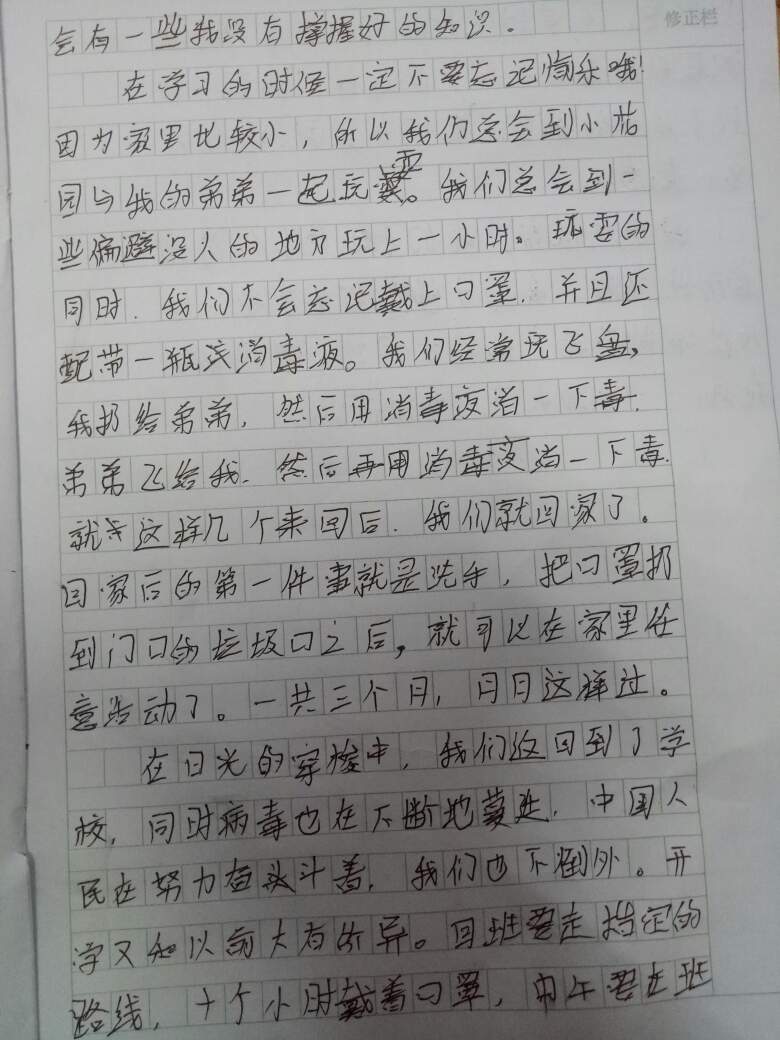 修正栏
会有一些我没有撑握好的知识。
在学习的时候一定不要忘记愉乐哦!
因为家里比较小，所以我们总会到小花
园与我的弟弟一起玩耍。我们总会到一
些偏避没人的地方玩上一小时。玩耍的
同时，我们不会忘记戴上口罩，并且还
配带一瓶洗消毒液。我们经常玩飞盘，
我扔给弟弟，然后用消毒夜消一下毒，
弟弟飞给我，然后再用消毒夜消一下毒，
就是这样几个来回后，我们就回家了。
回家后的第一件事就是洗手，把口罩扔
到门口的垃圾口之后，就可以在家里任
意活动了。一共三个月，月日这样过。
在日光的穿梭中，我们返回到了学
校，同时病毒也在不断地蔓延，中国人
民在努力奋斗着，我们也不例外。开
学又和以前大有所异。回班要走指定的
路线，十个小时戴着口罩，中午要在班